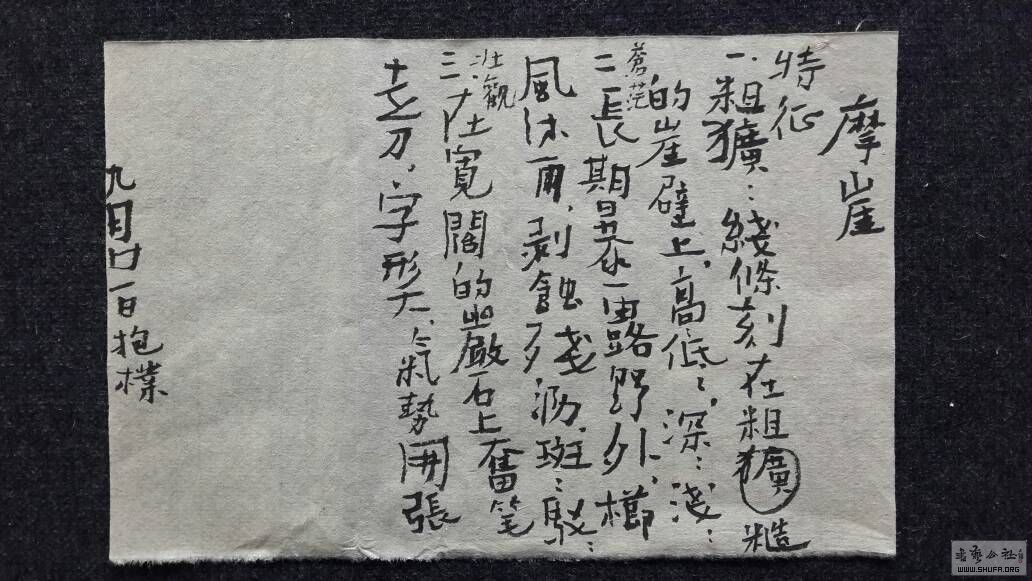 摩崖
特征
一.粗獷:綫條刻在粗獷糙
的崖壁上,高低、深:淺:
蒼茫
二長期暴露野外,櫛
風沐雨,剥蝕殘泐,斑:駁:
壯觀
三.在寬闊的巖石上奮筆
走刀,字形大、氣勢開張
九月廿一日抱樸
書藝公社
WWW.SHUFA.ORG